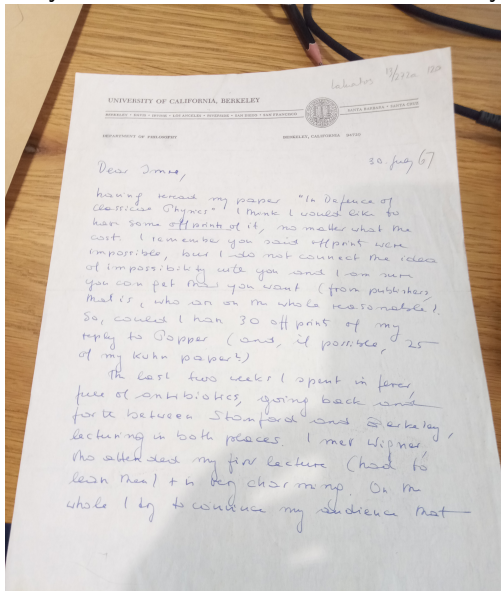 Lakatos
UNIVERSITY OF CALIFORNIA, BERKELEY
BERKELEY • DAVIS • IRVINE • LOS ANGELES • RIVERSIDE • SAN DIEGO • SAN FRANCISCO
SANTA BARBARA • SANTA CRUZ
DEPARTMENT OF PHILOSOPHY
BERKELEY, CALIFORNIA 94720
30. July 67
Dear Imre,
having reread my paper "In Defence of
Classical Physics" I think I would like to
have some offprints of it, no matter what the
cost. I remember you said offprints were
impossible, but I do not connect the idea
of impossibility with you and I am sure
you can get what you want (from publishers,
that is, who are on the whole reasonable).
So, could I have 30 offprints of my
reply to Popper (and, if possible, 25
of my Kuhn paper?)
The last two weeks I spent in fever,
full of antibiotics, going back and
forth between Stanford and Berkeley,
lecturing in both places. I met Wigner,
who attended my first lecture (had to
very charming. On the
whole I try to convince my audience that